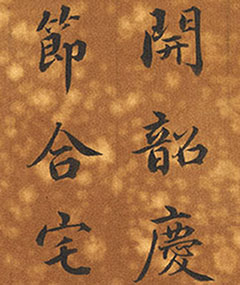 開韶慶
節合宅